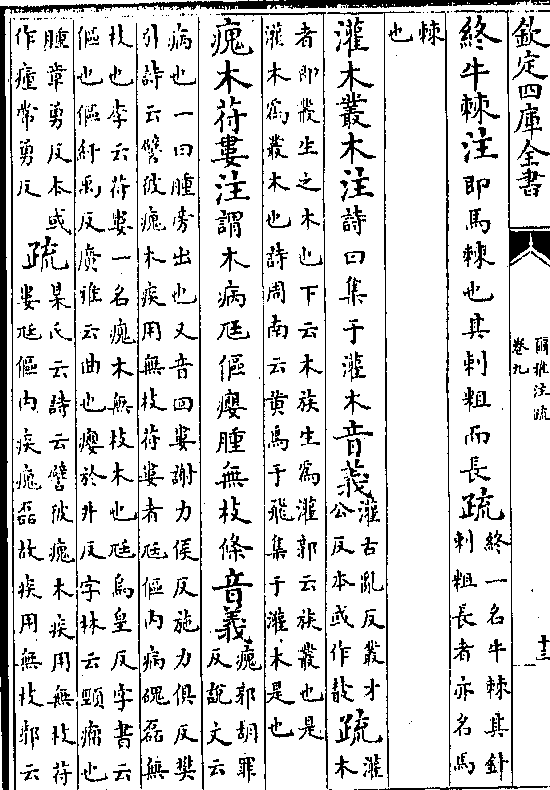 欽定四庫全書
爾雅注疏
卷九
十三
終牛棘注即馬棘也其刺粗而長疏
終一名牛棘其針
刺粗長者亦名馬
棘
也
灌木叢木注詩曰集于灌木音義
灌古亂反叢才
公反本或作藂
疏
灌
木
者即叢生之木也下云木族生爲灌郭云族叢也是
灌木爲叢木也詩周南云黄鳥于飛集于灌木是也
瘣木苻婁注謂木病尪傴癭腫無枝條音義
瘣郭胡罪
反說文云
病也一曰腫旁出也又音回婁謝力侯反施力俱反樊
引詩云譬彼瘣木疾用無枝苻婁者尪傴内病磈磊無
枝也李云苻婁一名瘣木無枝木也尪烏皇反字書云
傴也傴紆禹反廣雅云曲也癭於井反字林云頸瘤也
腫章勇反本或
作瘇常勇反
疏
某氏云詩云譬彼瘣木疾用無枝苻
婁尪傴内疾瘣磊故疾用無枝郭云